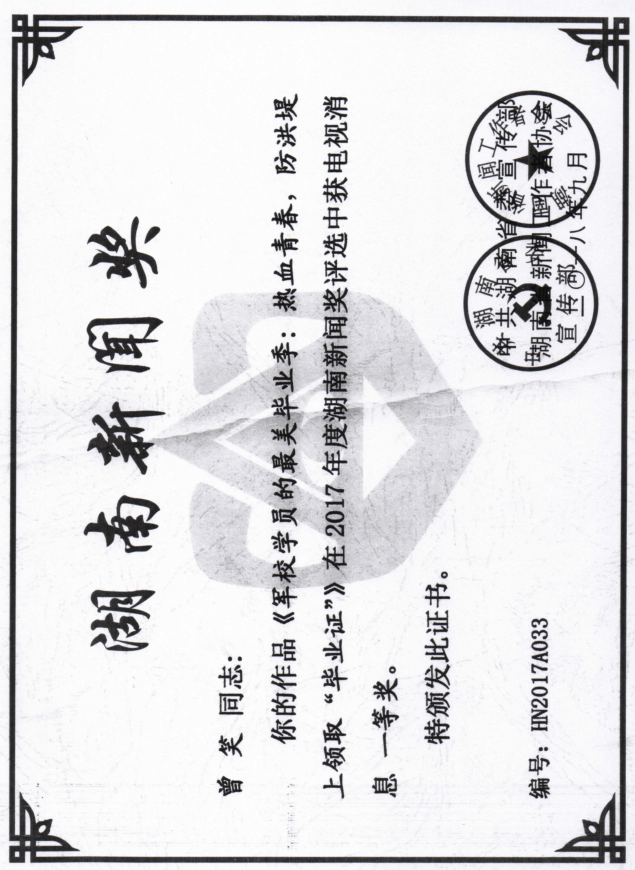 湖南新闻奖
曾笑 同志：
你的作品《军校学员的最美毕业季：热血青春，防洪堤
上领取“毕业证”》在2017年度湖南新闻奖评选中获电视消
息一等奖。
特颁发此证书。
编号：HN2017A033
中共湖南省委宣传部
湖南省新闻工作者协会
二〇一八年九月
宣传部